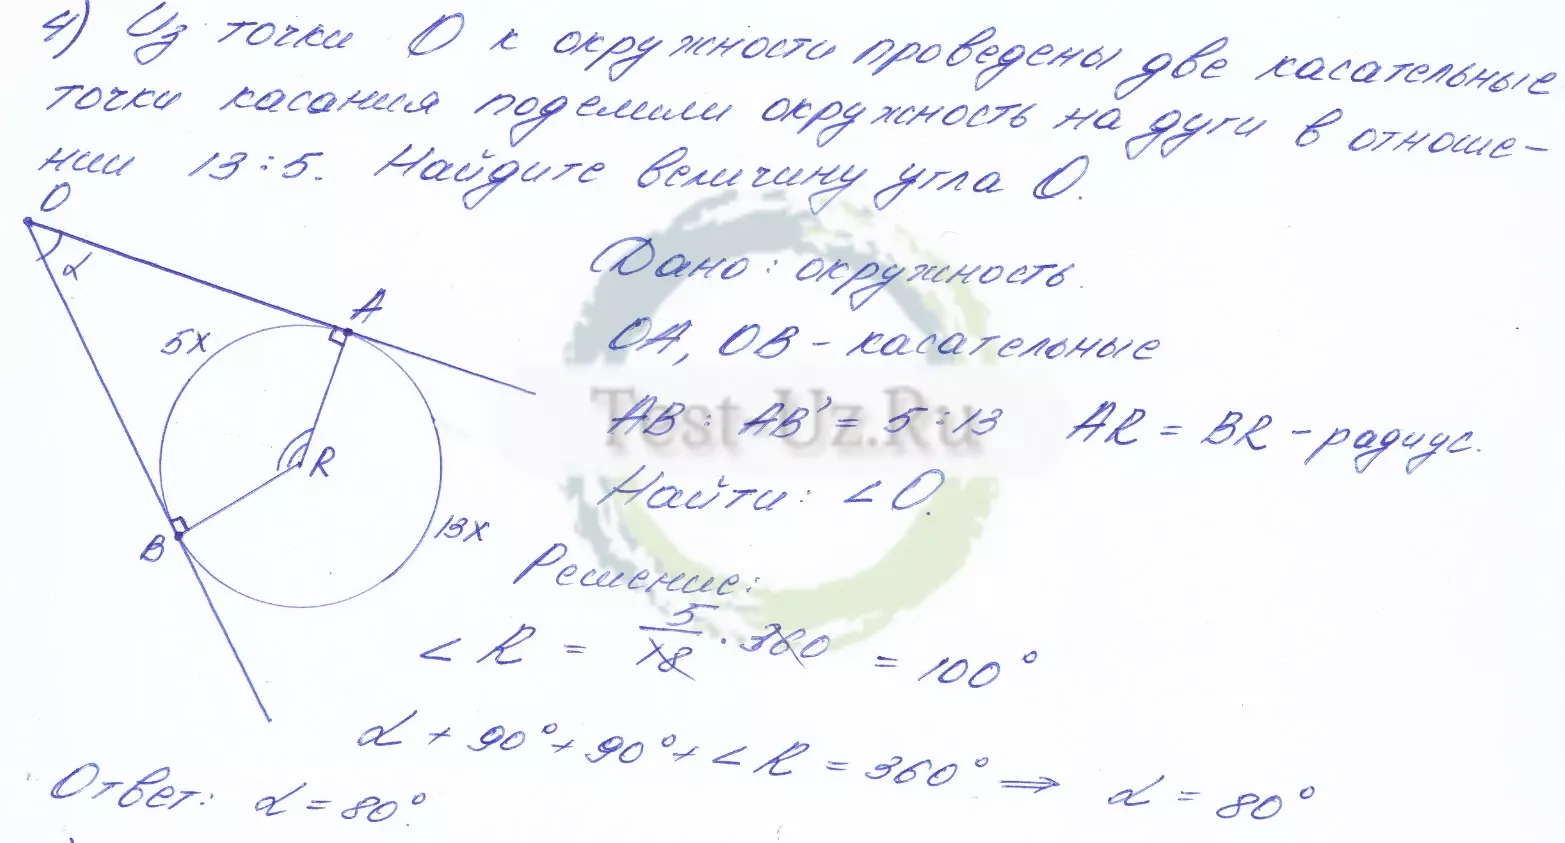 4) Из точки О к окружности проведены две касательные
точки касания поделили окружность на дуги в отноше-
нии 13:5. Найдите величину угла О.
О
α
A
5x
R
B
13x
Дано: окружность.
OA, OB - касательные
AB : AB' = 5:13 AR = BR - радиус.
Найти: ∠O.
Test-Uz.Ru
Решение:
∠R = 5/18 · 360 = 100°
α + 90° + 90° + ∠R = 360° ⇒ α = 80°
Ответ: α = 80°.